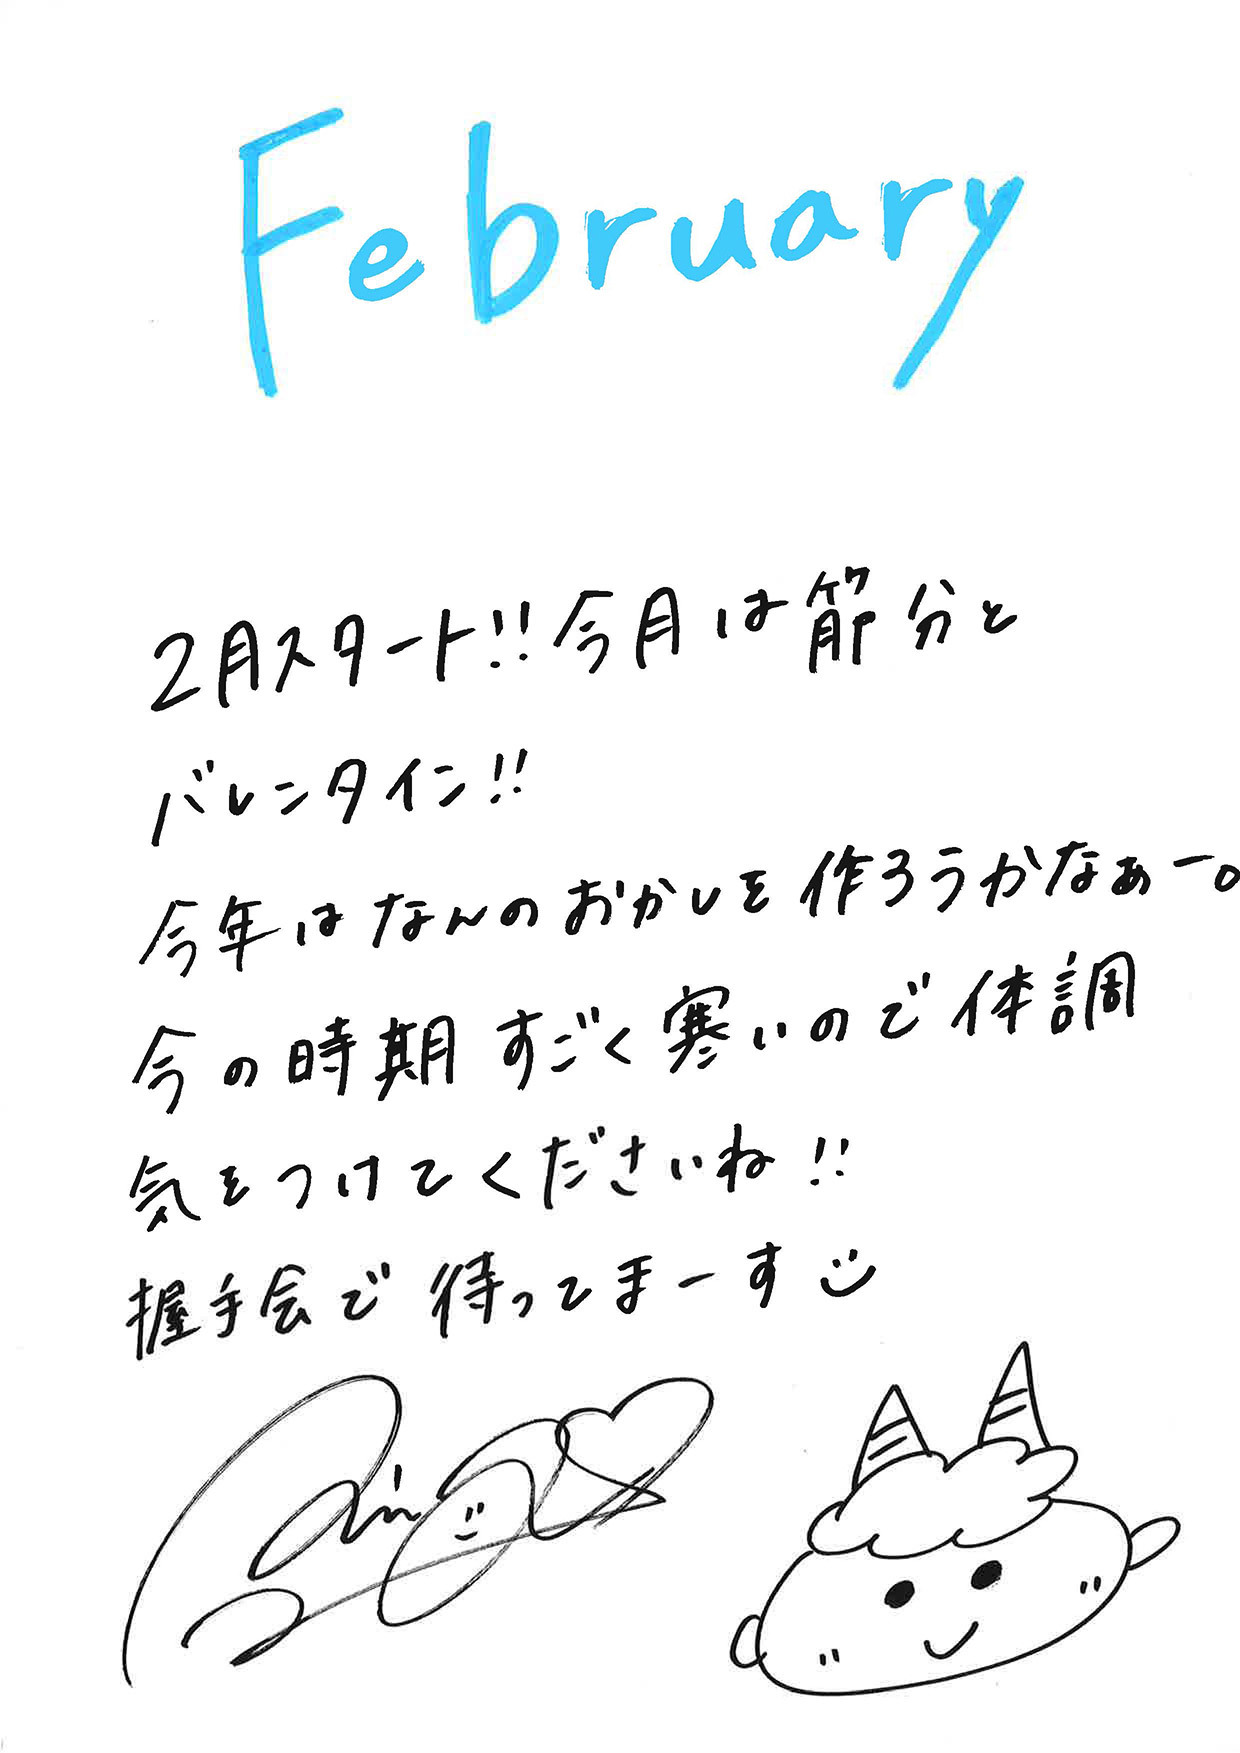 February
2月スタート!!今月は節分と
バレンタイン!!
今年はなんのおかしを作ろうかなぁー。
今の時期すごく寒いので体調
気をつけてくださいね!!
握手会で待ってまーす